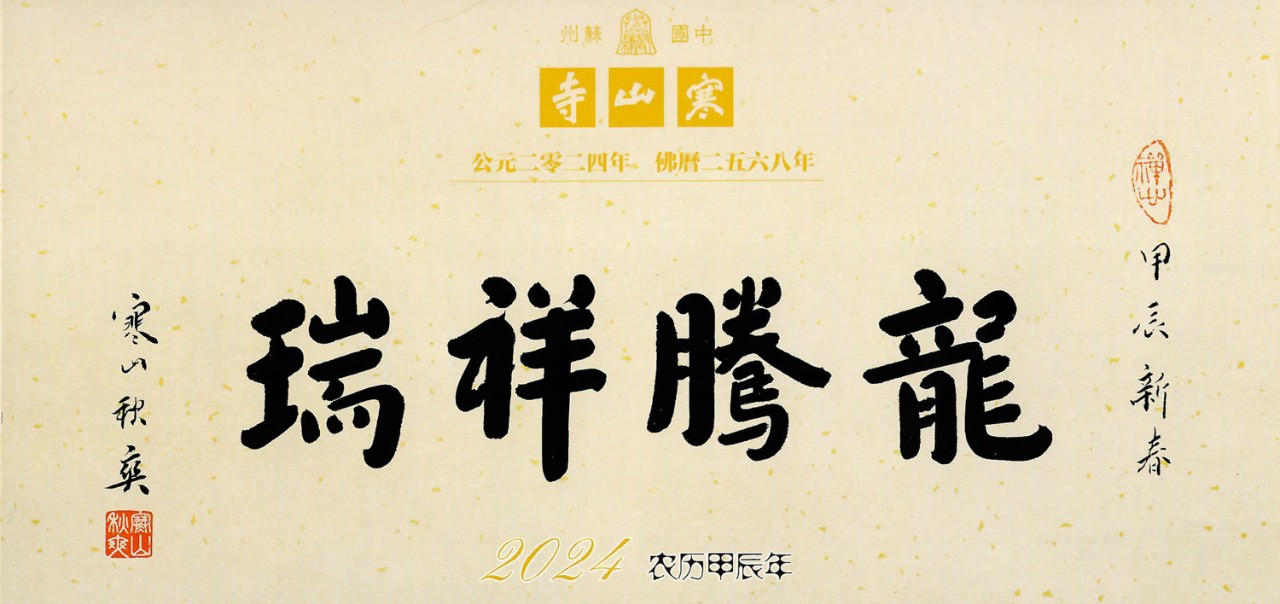 中國蘇州
寒山寺
公元二零二四年 佛曆二五六八年
禪山
甲辰新春
龍騰祥瑞
寒山秋爽
寒山秋爽
2024 农历甲辰年